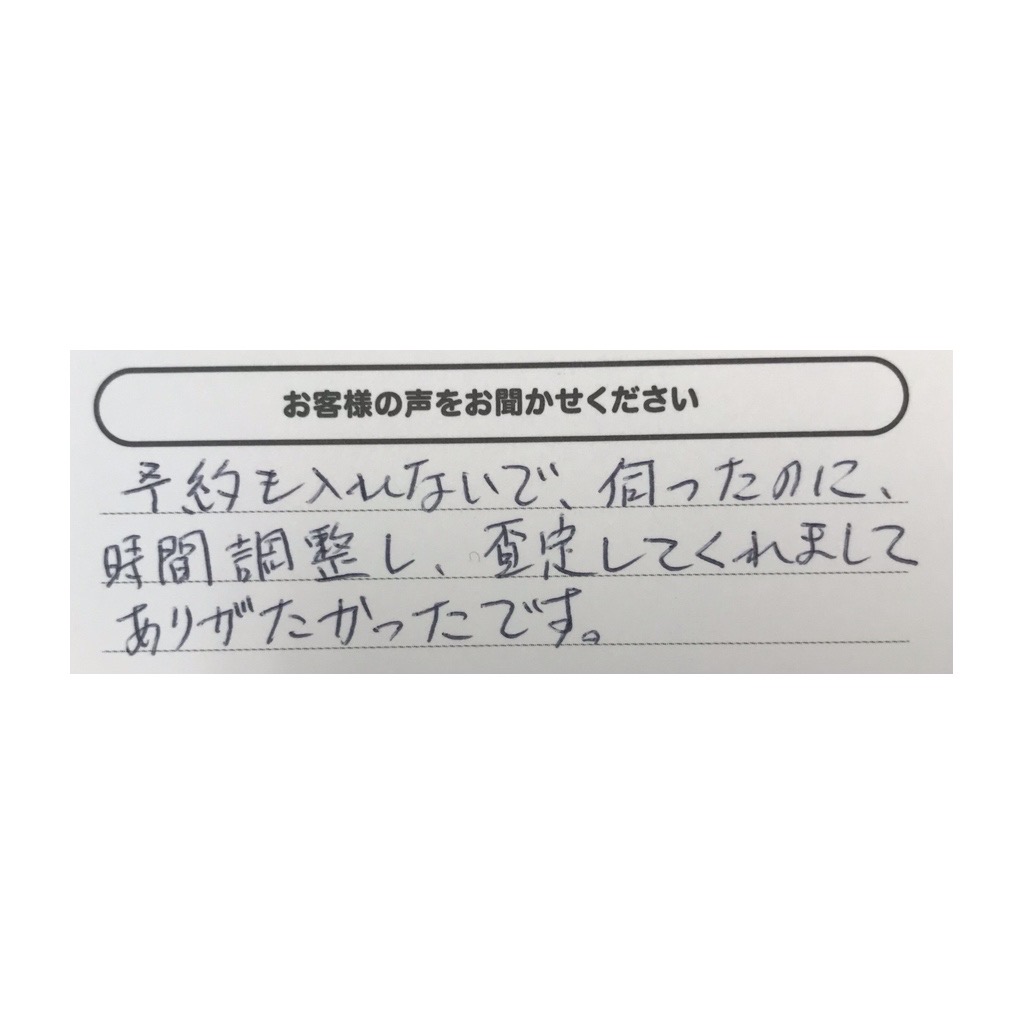 お客様の声をお聞かせください
予約も入れないで、伺ったのに、
時間調整し、査定してくれまして
ありがたかったです。